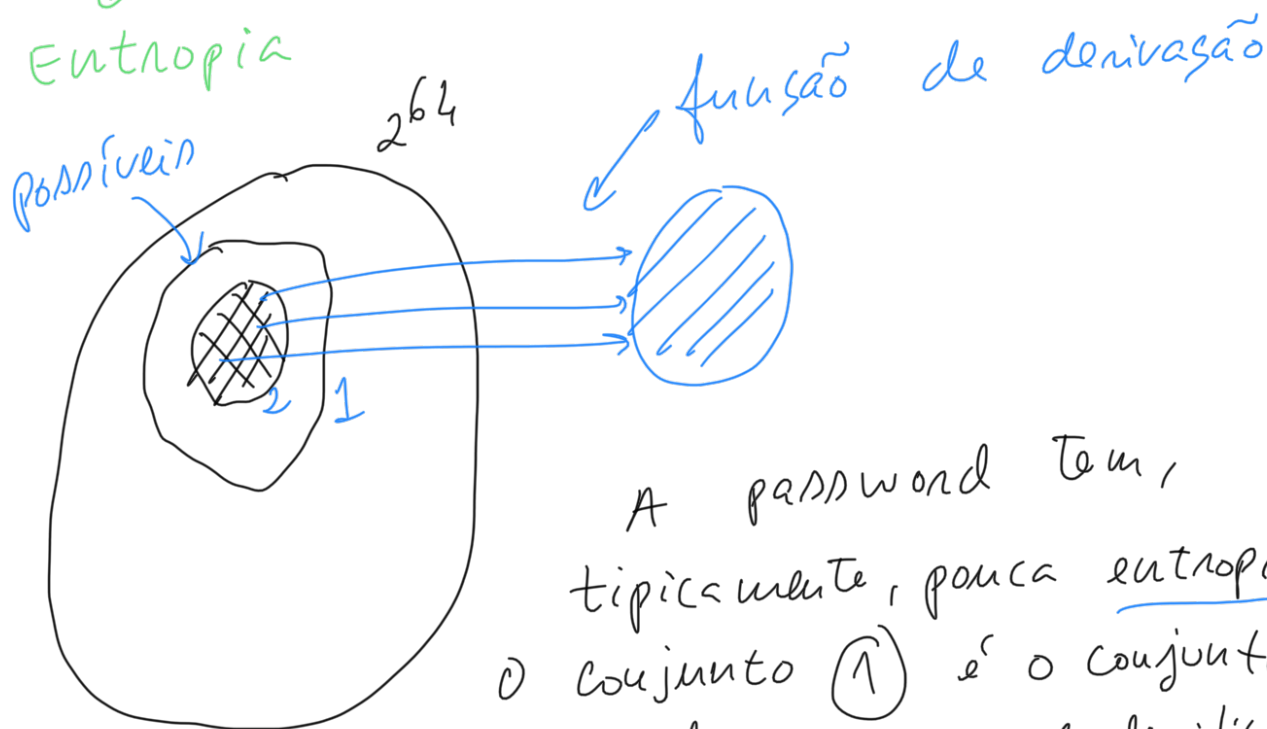 Entropia
função de derivação
2^64
possíveis
2
1
A password tem,
tipicamente, pouca entrop
O conjunto 1 é o conjunt